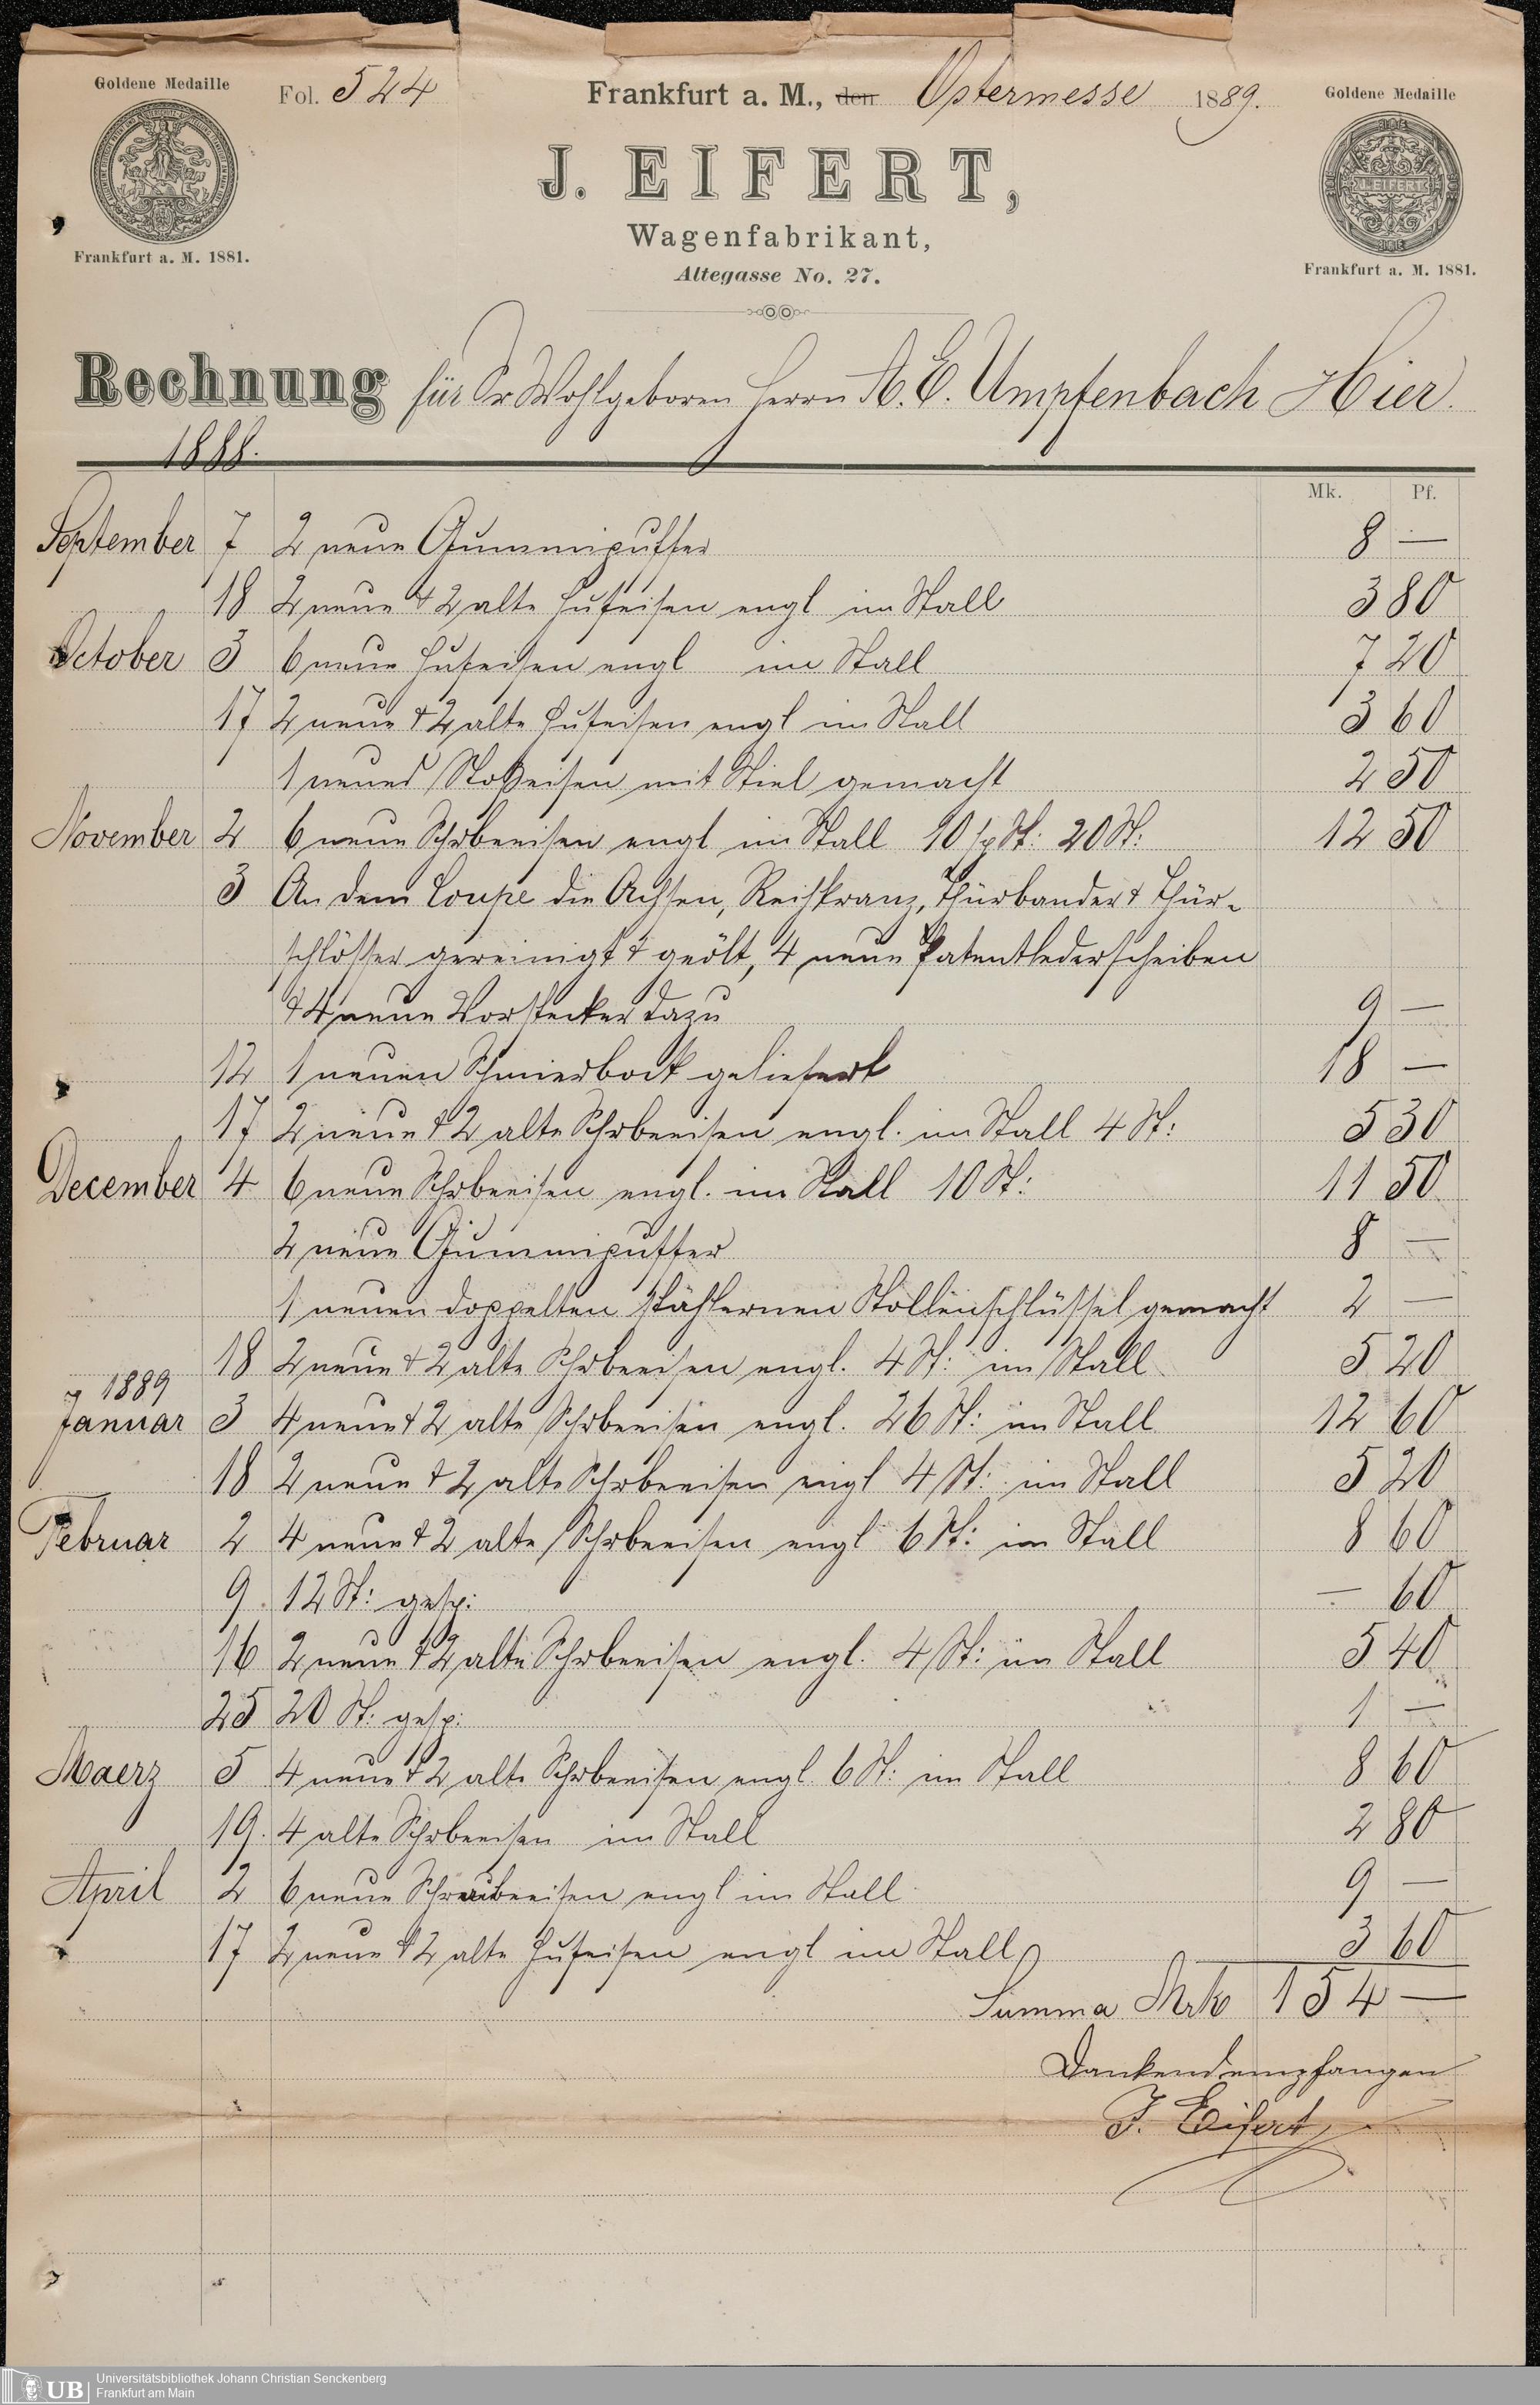 Goldene Medaille
Fol. 524
Frankfurt a. M., den Ostermesse 1889.
Goldene Medaille
J. EIFERT,
J. EIFERT
Wagenfabrikant,
Frankfurt a. M. 1881.
Altegasse No. 27.
Frankfurt a. M. 1881.
Rechnung für Sr Wohlgeboren Herrn A. E. Umpfenbach Hier.
1888.
Mk. Pf.
September 7 2 neue Gummipuffer 8 —
18 2 neue & 2 alte Hufeisen engl im Stall 3 80
October 3 6 neue Hufeisen engl im Stall 7 20
17 2 neue & 2 alte Hufeisen engl im Stall 3 60
1 neues Stoßeisen mit Stiel gemacht 2 50
November 2 6 neue Schrbeneisen engl im Stall 10 St: 20 St: 12 50
3 An dem Coupe die Achsen, Reihkranz, Thürbander & Thür-
schlösser gereinigt & geölt, 4 neue Patentlederscheiben
& 4 neue Vorstecker dazu 9 —
12 1 neuen Schmierbock geliefert 18 —
17 2 neue & 2 alte Schrbeneisen engl. im Stall 4 St: 5 30
December 4 6 neue Schrbeneisen engl. im Stall 10 St: 11 50
2 neue Gummipuffer 8 —
1 neuen doppelten stählernen Stollenschlüssel gemacht 2 —
18 2 neue & 2 alte Schrbeneisen engl. 4 St: im Stall 5 20
1889
Januar 3 4 neue & 2 alte Schrbeneisen engl. 26 St: im Stall 12 60
18 2 neue & 2 alte Schrbeneisen engl 4 St: im Stall 5 20
Februar 2 4 neue & 2 alte Schrbeneisen engl 6 St: im Stall 8 60
9. 12 St: gesp: — 60
16 2 neue & 2 alte Schrbeneisen engl. 4 St: im Stall 5 40
25 20 St: gesp: 1 —
Maerz 5 4 neue & 2 alte Schrbeneisen engl 6 St: im Stall 8 60
19. 4 alte Schrbeneisen im Stall 2 80
April 2 6 neue Schraubeneisen engl im Stall 9 —
17 2 neue & 2 alte Hufeisen engl im Stall 3 60
Summa Mrk 154 —
Dankend empfangen
J. Eifert
UB
Universitätsbibliothek Johann Christian Senckenberg
Frankfurt am Main